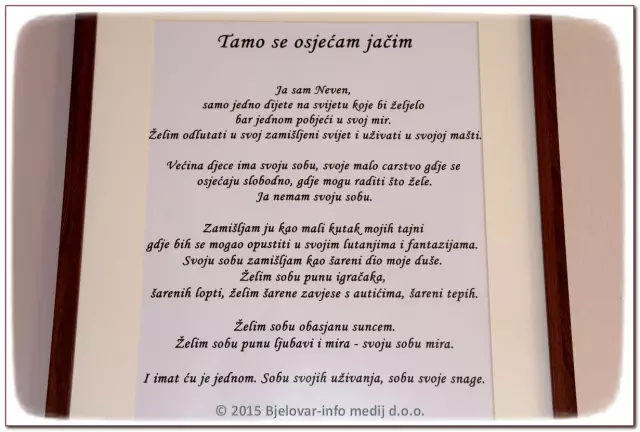 Tamo se osjećam jačim
Ja sam Neven,
samo jedno dijete na svijetu koje bi željelo
bar jednom pobjeći u svoj mir.
Želim odlutati u svoj zamišljeni svijet i uživati u svojoj mašti.
Većina djece ima svoju sobu, svoje malo carstvo gdje se
osjećaju slobodno, gdje mogu raditi što žele.
Ja nemam svoju sobu.
Zamišljam ju kao mali kutak mojih tajni
gdje bih se mogao opustiti u svojim lutanjima i fantazijama.
Svoju sobu zamišljam kao šareni dio moje duše.
Želim sobu punu igračaka,
šarenih lopti, želim šarene zavjese s autićima, šareni tepih.
Želim sobu obasjanu suncem.
Želim sobu punu ljubavi i mira - svoju sobu mira.
I imat ću je jednom. Sobu svojih uživanja, sobu svoje snage.
© 2015 Bjelovar-info medij d.o.o.